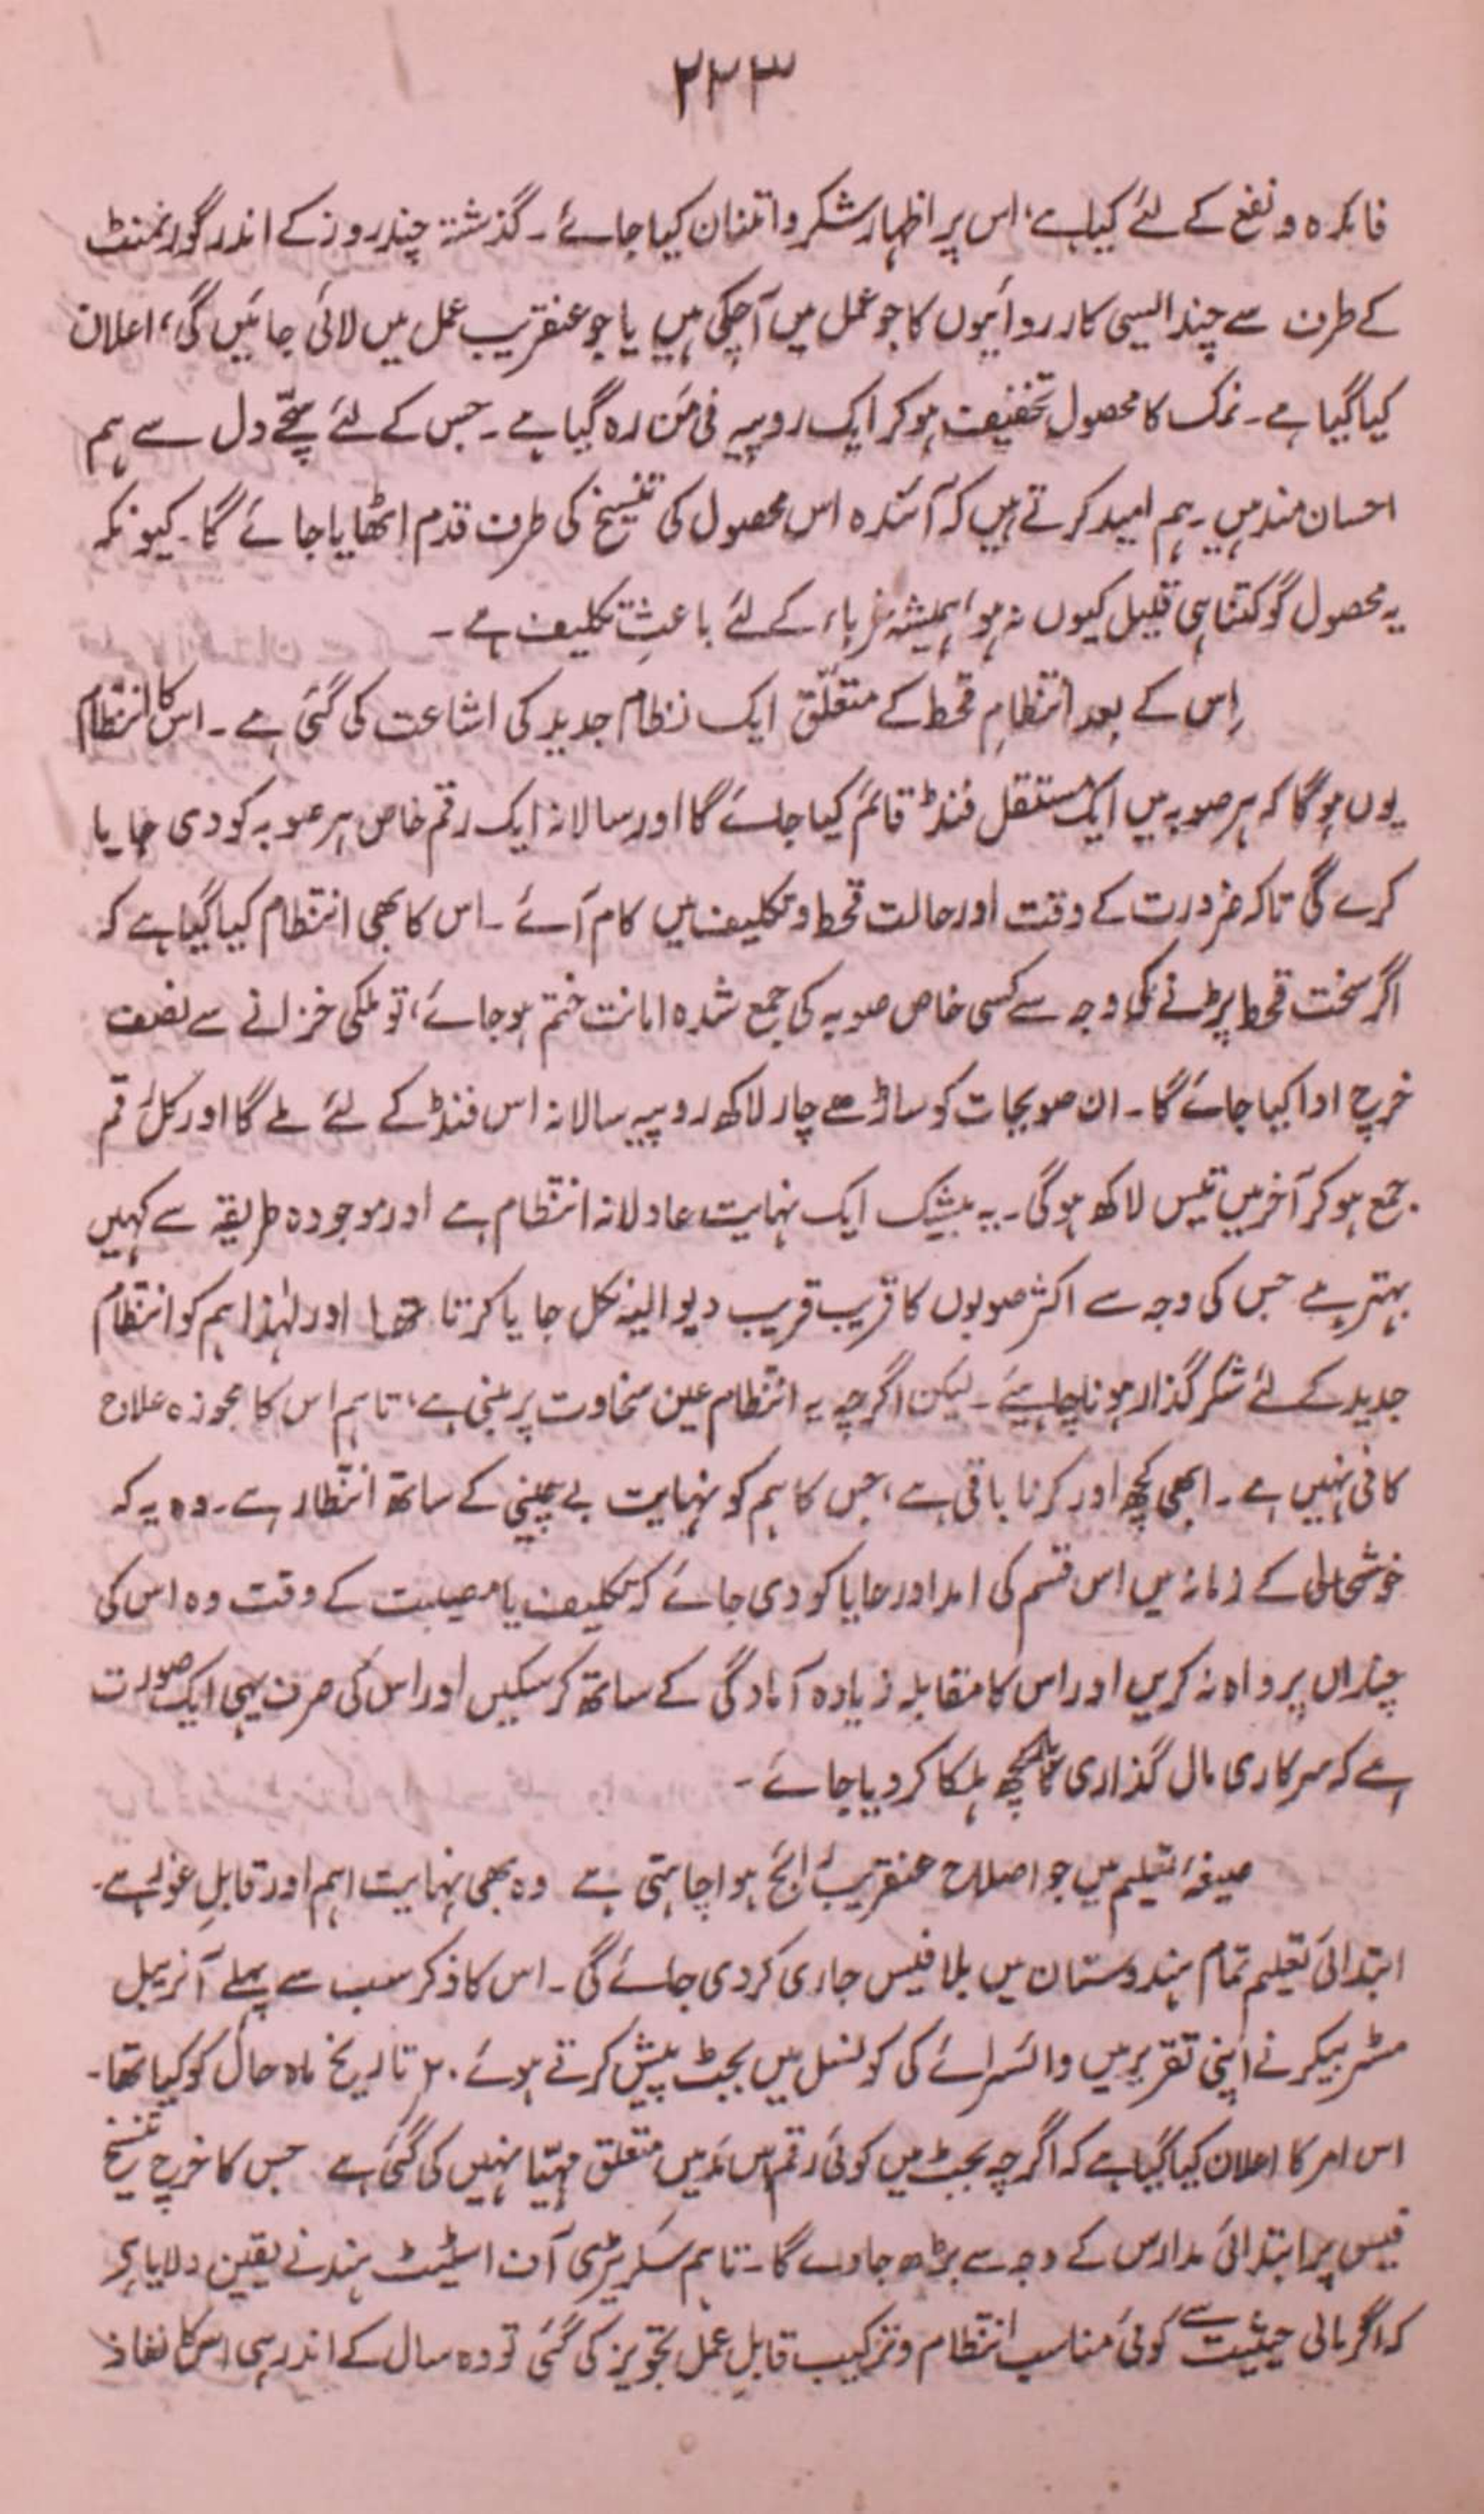 ۲۲۳
فائدہ و نفع کے لئے کیا ہے، اس پر اظہار شکر و امتنان کیا جائے۔ گذشتہ چند روز کے اندر گورنمنٹ
کے طرف سے چند ایسی کارروائیوں کا جو عمل میں آچکی ہیں یا جو عنقریب عمل میں لائی جائیں گی، اعلان
کیا گیا ہے۔ نمک کا محصول تخفیف ہو کر ایک روپیہ فی من رہ گیا ہے۔ جس کے لئے سچّے دل سے ہم
احسان مند ہیں۔ ہم امید کرتے ہیں کہ آئندہ اس محصول کی تنسیخ کی طرف قدم اٹھایا جائے گا۔ کیونکہ
یہ محصول گو کتنا ہی قلیل کیوں نہ ہو، ہمیشہ غرباء کے لئے باعثِ تکلیف ہے۔
اِس کے بعد انتظامِ قحط کے متعلّق ایک نظام جدید کی اشاعت کی گئی ہے۔ اس کا انتظام
یوں ہو گا کہ ہر صوبہ میں ایک مستقل فنڈ قائم کیا جائے گا اور سالانہ ایک رقم خاص ہر صوبہ کو دی جایا
کرے گی تاکہ ضرورت کے وقت اور حالت قحط و تکلیف میں کام آئے۔ اس کا بھی انتظام کیا گیا ہے کہ
اگر سخت قحط پڑنے کی وجہ سے کسی خاص صوبہ کی جمع شدہ امانت ختم ہو جائے، تو ملکی خزانے سے نصف
خرچ ادا کیا جائے گا۔ ان صوبجات کو ساڑھے چار لاکھ روپیہ سالانہ اس فنڈ کے لئے ملے گا اور کل رقم
جمع ہو کر آخر میں تیس لاکھ ہو گی۔ یہ بیشک ایک نہایت عادلانہ انتظام ہے اور موجودہ طریقہ سے کہیں
بہتر ہے جس کی وجہ سے اکثر صوبوں کا قریب قریب دیوالیہ نکل جایا کرتا تھا اور لہٰذا ہم کو انتظام
جدید کے لئے شکر گذار ہونا چاہیئے۔ لیکن اگرچہ یہ انتظام عین سخاوت پر مبنی ہے، تاہم اس کا مجوزہ علاج
کافی نہیں ہے۔ ابھی کچھ اور کرنا باقی ہے، جس کا ہم کو نہایت بے چینی کے ساتھ انتظار ہے۔ وہ یہ کہ
خوشحالی کے زمانہ میں اس قسم کی امداد رعایا کو دی جائے کہ تکلیف یا مصیبت کے وقت وہ اس کی
چنداں پرواہ نہ کریں اور اس کا مقابلہ زیادہ آمادگی کے ساتھ کر سکیں اور اس کی صرف یہی ایک صورت
ہے کہ سرکاری مال گذاری کا بار کچھ ہلکا کر دیا جائے۔
صیغۂ تعلیم میں جو اصلاح عنقریب رائج ہوا چاہتی ہے وہ بھی نہایت اہم اور قابلِ غور ہے۔
ابتدائی تعلیم تمام ہندوستان میں بلا فیس جاری کر دی جائے گی۔ اس کا ذکر سب سے پہلے آنریبل
مسٹر بیکر نے اپنی تقریر میں وائسرائے کی کونسل میں بجٹ پیش کرتے ہوئے ۲۰ تاریخ ماہ حال کو کیا تھا۔
اس امر کا اعلان کیا گیا ہے کہ اگرچہ بجٹ میں کوئی رقم اس مد میں متعلق مہیّا نہیں کی گئی ہے جس کا خرچ تنسیخ
فیس پر ابتدائی مدارس کے وجہ سے بڑھ جاوے گا۔ تاہم سکریٹری آف اسٹیٹ ہند نے یقین دلایا ہے
کہ اگر مالی حیثیت سے کوئی مناسب انتظام و ترکیب قابلِ عمل تجویز کی گئی تو وہ سال کے اندر ہی اس کا نفاذ